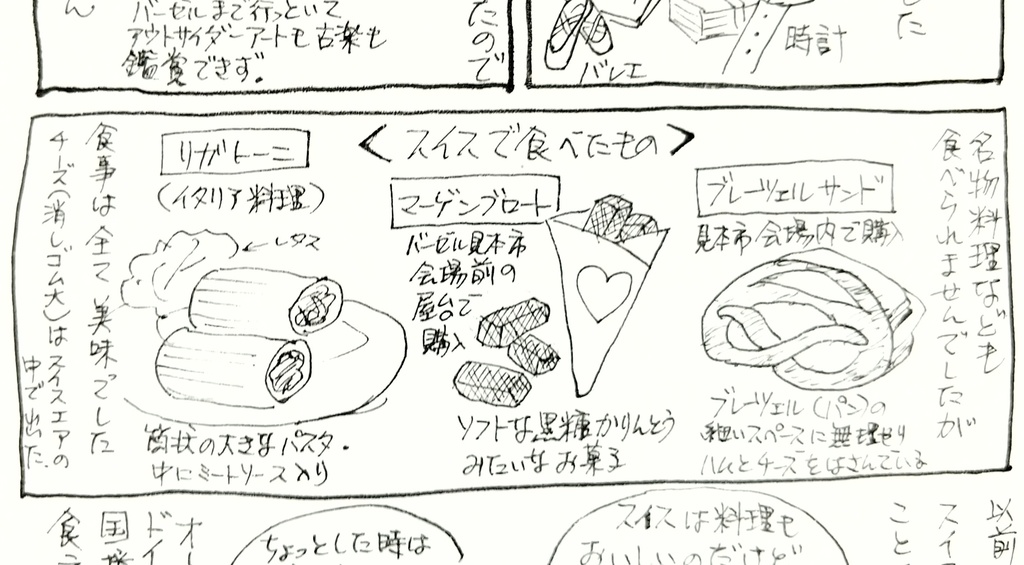 した
時計
バレエ
たので
バーゼルまで行っといて
アウトサイダーアートも古楽も
鑑賞できず。
ん
<スイスで食べたもの>
名物料理なども
食べられませんでしたが
ブレーツェルサンド
見本市会場内で購入
ブレーツェル(パン)の
細いスペースに無理やり
ハムとチーズをはさんでいる
マーゲンブロート
バーゼル見本市
会場前の
屋台で
購入
ソフトな黒糖かりんとう
みたいなお菓子
リガトーニ
(イタリア料理)
←レタス
筒状の大きなパスタ.
中にミートソース入り
食事は全て美味でした
チーズ(消しゴム大)はスイスエアの
中で出た.
以前
スイ
こと
スイスは料理も
おいしいのだけど
ちょっとした時は
オー
ドイ
国
食